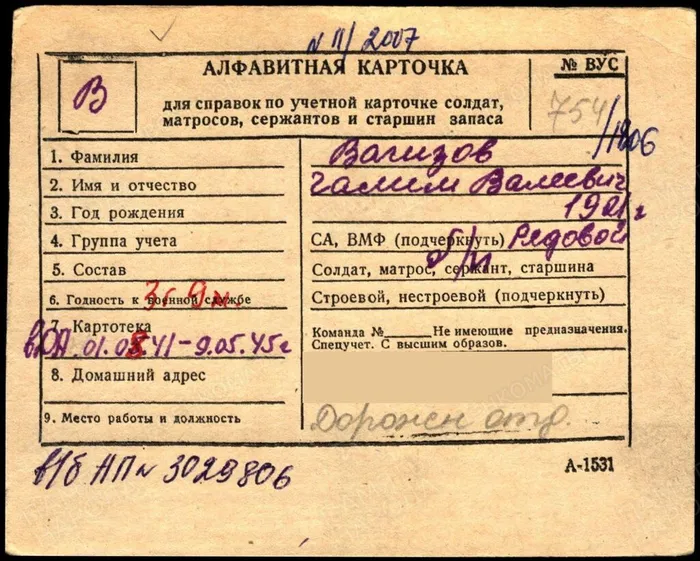 N 11/2007
АЛФАВИТНАЯ КАРТОЧКА
№ ВУС
В
для справок по учетной карточке солдат,
матросов, сержантов и старшин запаса
754
/1806
1. Фамилия
Вагизов
2. Имя и отчество
Галим Валеевич
3. Год рождения
1921 г
4. Группа учета
СА, ВМФ (подчеркнуть) Рядовой
5. Состав
Солдат, матрос, сержант, старшина
6. Годность к военной службе
3г 9м.
Строевой, нестроевой (подчеркнуть)
7. Картотека
Команда № Не имеющие предназначения.
Спецучет. С высшим образов.
01.08.41-9.05.45г
8. Домашний адрес
9. Место работы и должность
Дорожн отд.
в/б АП N 3029806
А-1531